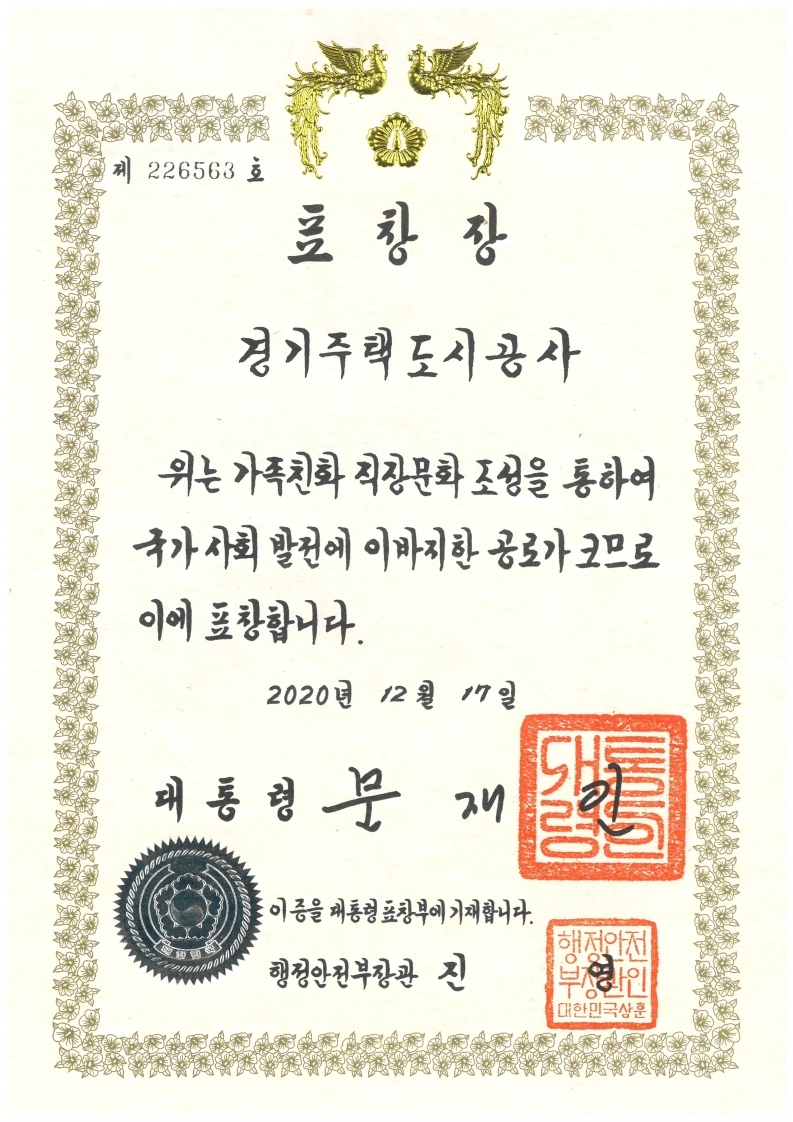 제 226563 호
표창장
경기주택도시공사
위는 가족친화 직장문화 조성을 통하여
국가 사회 발전에 이바지한 공로가 크므로
이에 표창합니다.
2020년 12월 17일
대통령 문재인
대통령의인
이 증을 대통령표창부에 기재합니다.
행정안전부장관 진영
행정안전
부장관인
대한민국상훈